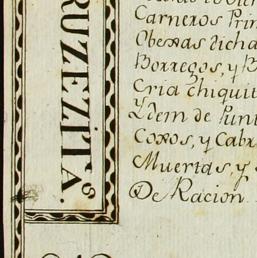 RUZEZITAS.
Carneros Prim
Obexas dicha
Borregos, y B
Cria chiquit
Ydem de Punt
Coxos, y Cabr
Muertas, y
De Racion.